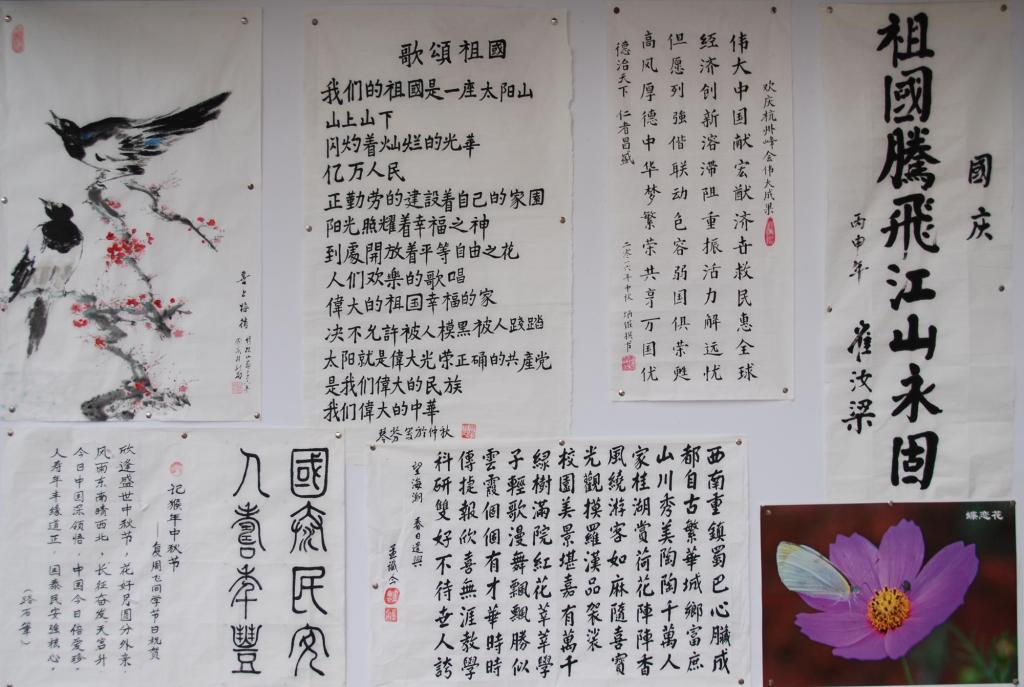 喜上梅梢
歌頌祖國
我们的祖國是一座太阳山
山上山下
闪灼着灿烂的光華
亿万人民
正勤劳的建設着自己的家園
阳光照耀着幸福之神
到處開放着平等自由之花
人们欢樂的歌唱
偉大的祖国幸福的家
决不允許被人模黑被人践踏
太阳就是偉大光荣正确的共產党
是我们偉大的民族
我们偉大的中華
欢庆杭州峰会伟大成果
伟大中国献宏猷济世救民惠全球
经济创新溶滞阻重振活力解远忧
但愿列強偕联动包容弱国俱荣甦
高风厚德中华梦繁荣共享万国优
德治天下 仁者昌盛
二〇一六年中秋
國庆
祖國騰飛江山永固
丙申年
崔汝梁
國泰民安
人壽年豐
记猴年中秋节
——复周飞同学节日祝贺
欣逢盛世中秋节，花好月圆分外亲，
风雨东南晴西北，长征奋发天宫升
今日中国深领悟，中国今日倍爱珍，
人寿年丰缘道正，国泰民安强核心。
（路石筆）
西南重鎮蜀巴心臟成
都自古繁華城鄉富庶
山川秀美陶陶千萬人
家桂湖賞荷花陣陣香
風繞游客如麻隨喜寳
光觀摸羅漢品袈裟
校園美景堪嘉有萬千
綠樹滿院紅花草草學
子輕歌漫舞飄飄勝似
雲霞個個有才華時時
傳捷報欣喜無涯教學
科研雙好不待世人誇
望海潮 春日遣興
蝶恋花